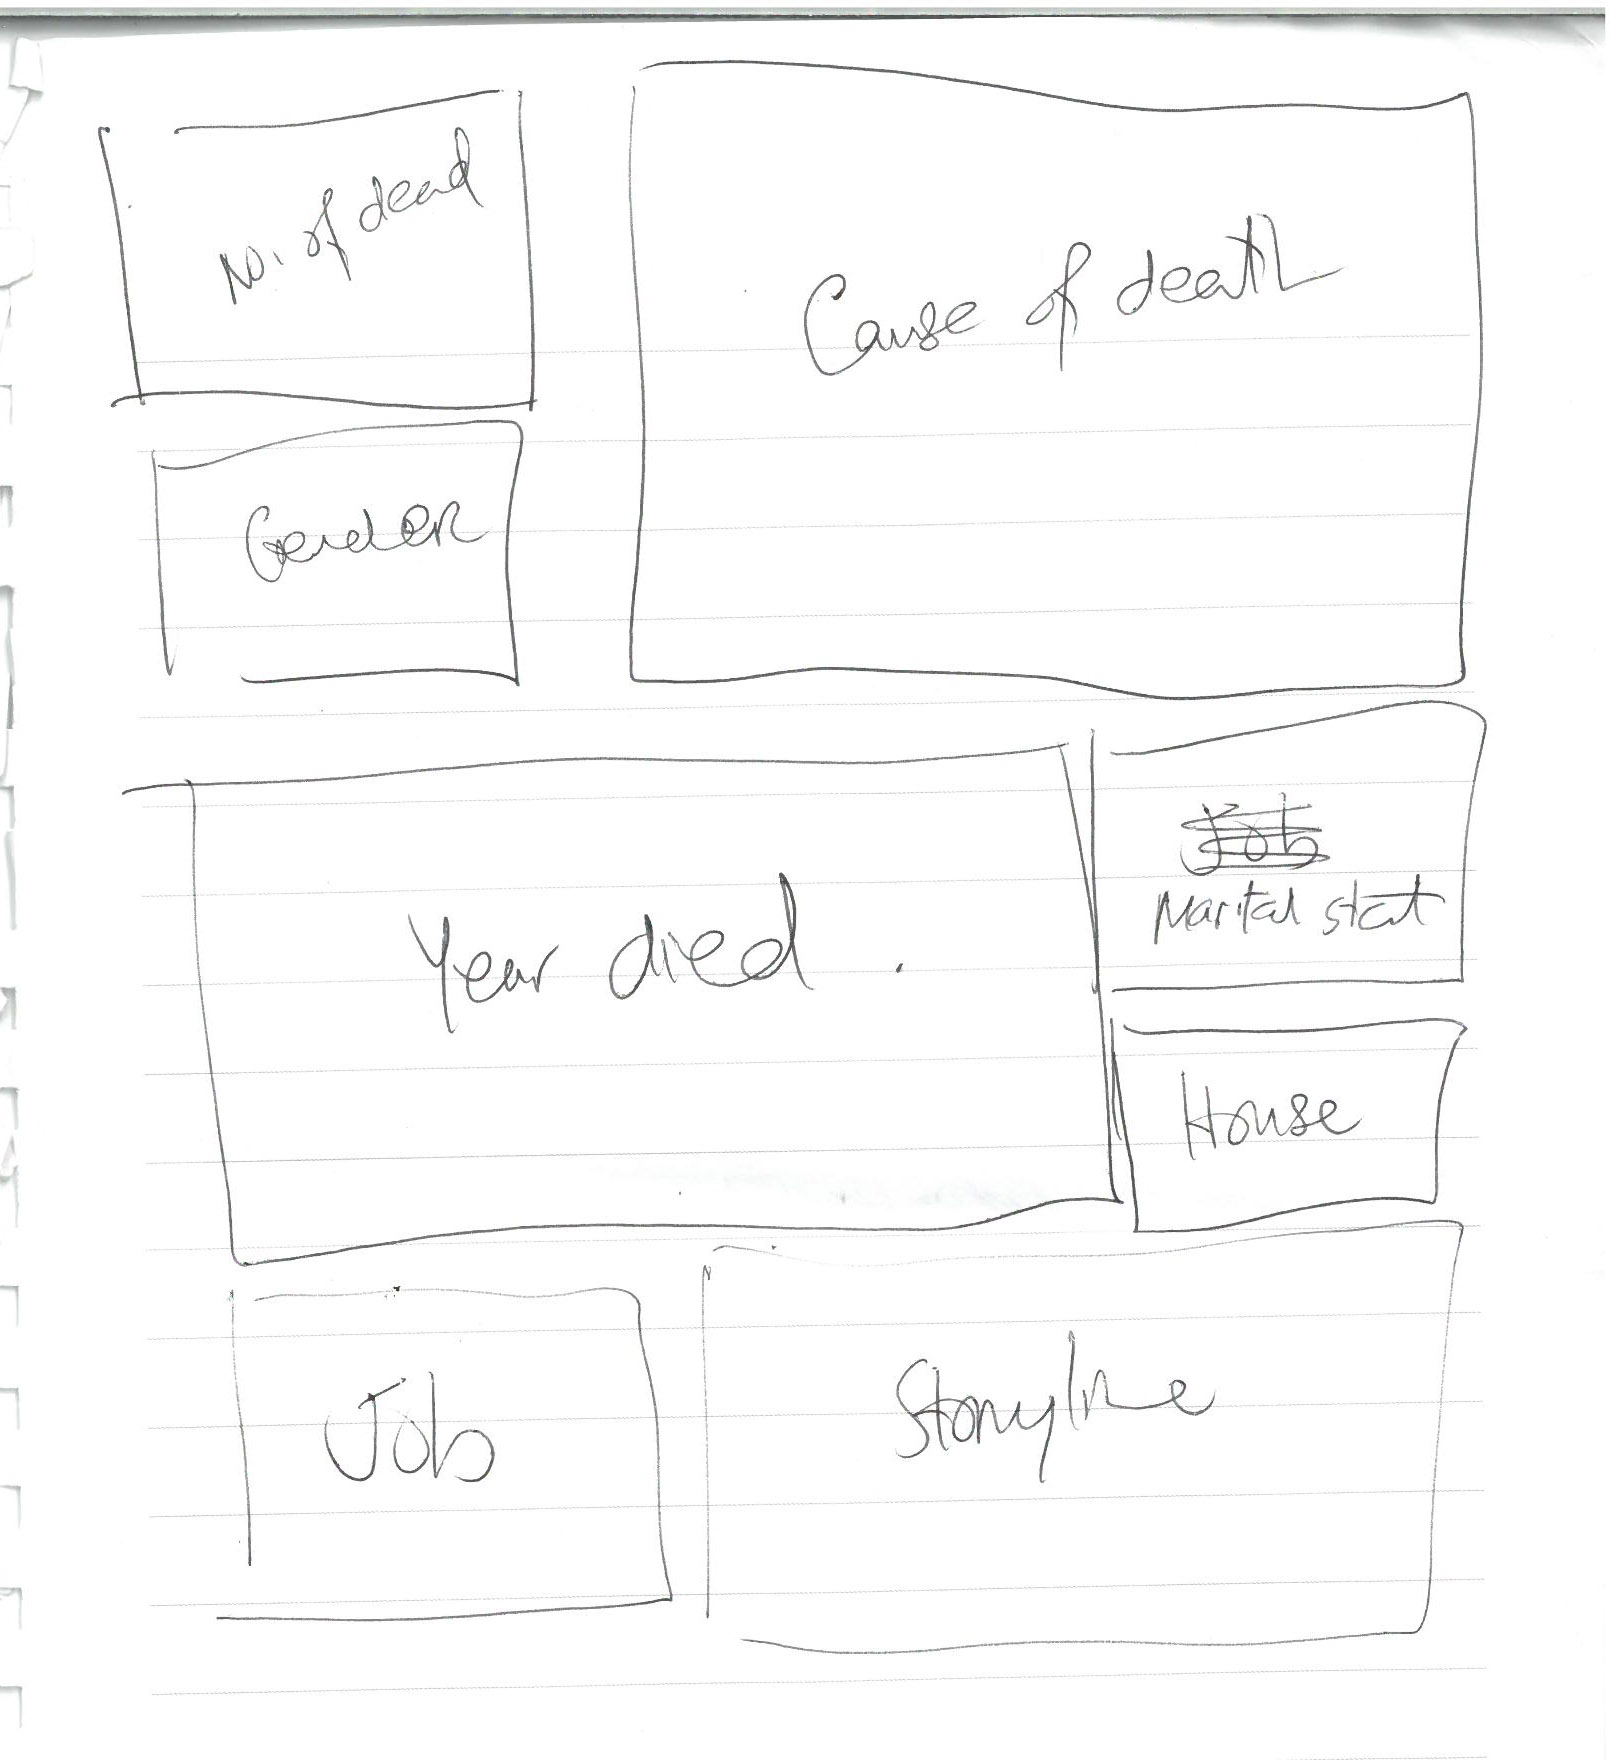 No. of dead
Cause of death
Gender
Year died.
Job
Marital stat
House
Job
Storyline